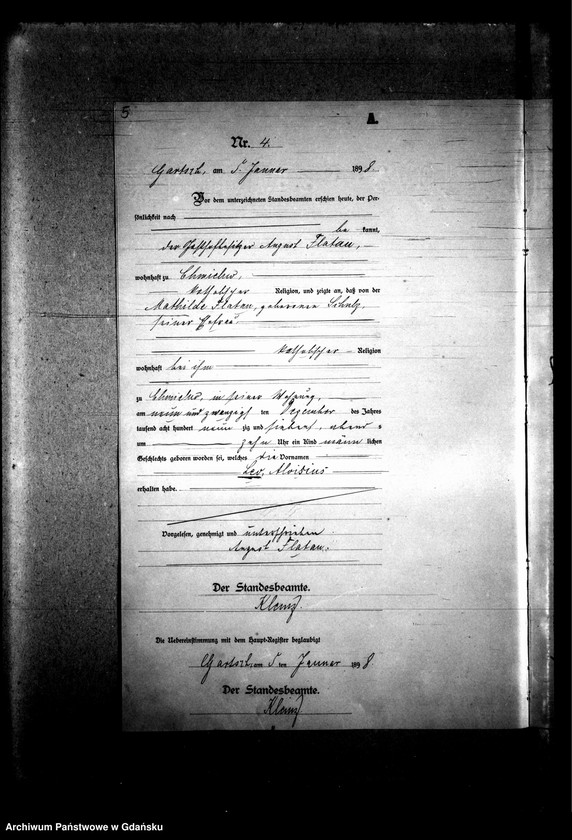 5
A.
Nr. 4.
Gartsch, am 5. Januar 1898.
Vor dem unterzeichneten Standesbeamten erschien heute, der Per-
sönlichkeit nach
be kannt,
der Gasthofbesitzer August Flatau,
wohnhaft zu Chmieln,
katholischer Religion, und zeigte an, daß von der
Mathilde Flatau, geborenen Schulz,
seiner Ehefrau
katholischer Religion
wohnhaft bei ihm
zu Chmieln, in seiner Wohnung,
am neun und zwanzigsten Dezember des Jahres
tausend acht hundert neun zig und sieben, abends
um zehn Uhr ein Kind männlichen
Geschlechts geboren worden sei, welches die Vornamen
Leo, Aloisius
erhalten habe.
Vorgelesen, genehmigt und unterschrieben
August Flatau.
Der Standesbeamte.
Klenz.
Die Uebereinstimmung mit dem Haupt-Register beglaubigt
Gartsch, am 5 ten Januar 1898
Der Standesbeamte.
Klenz
Archiwum Państwowe w Gdańsku